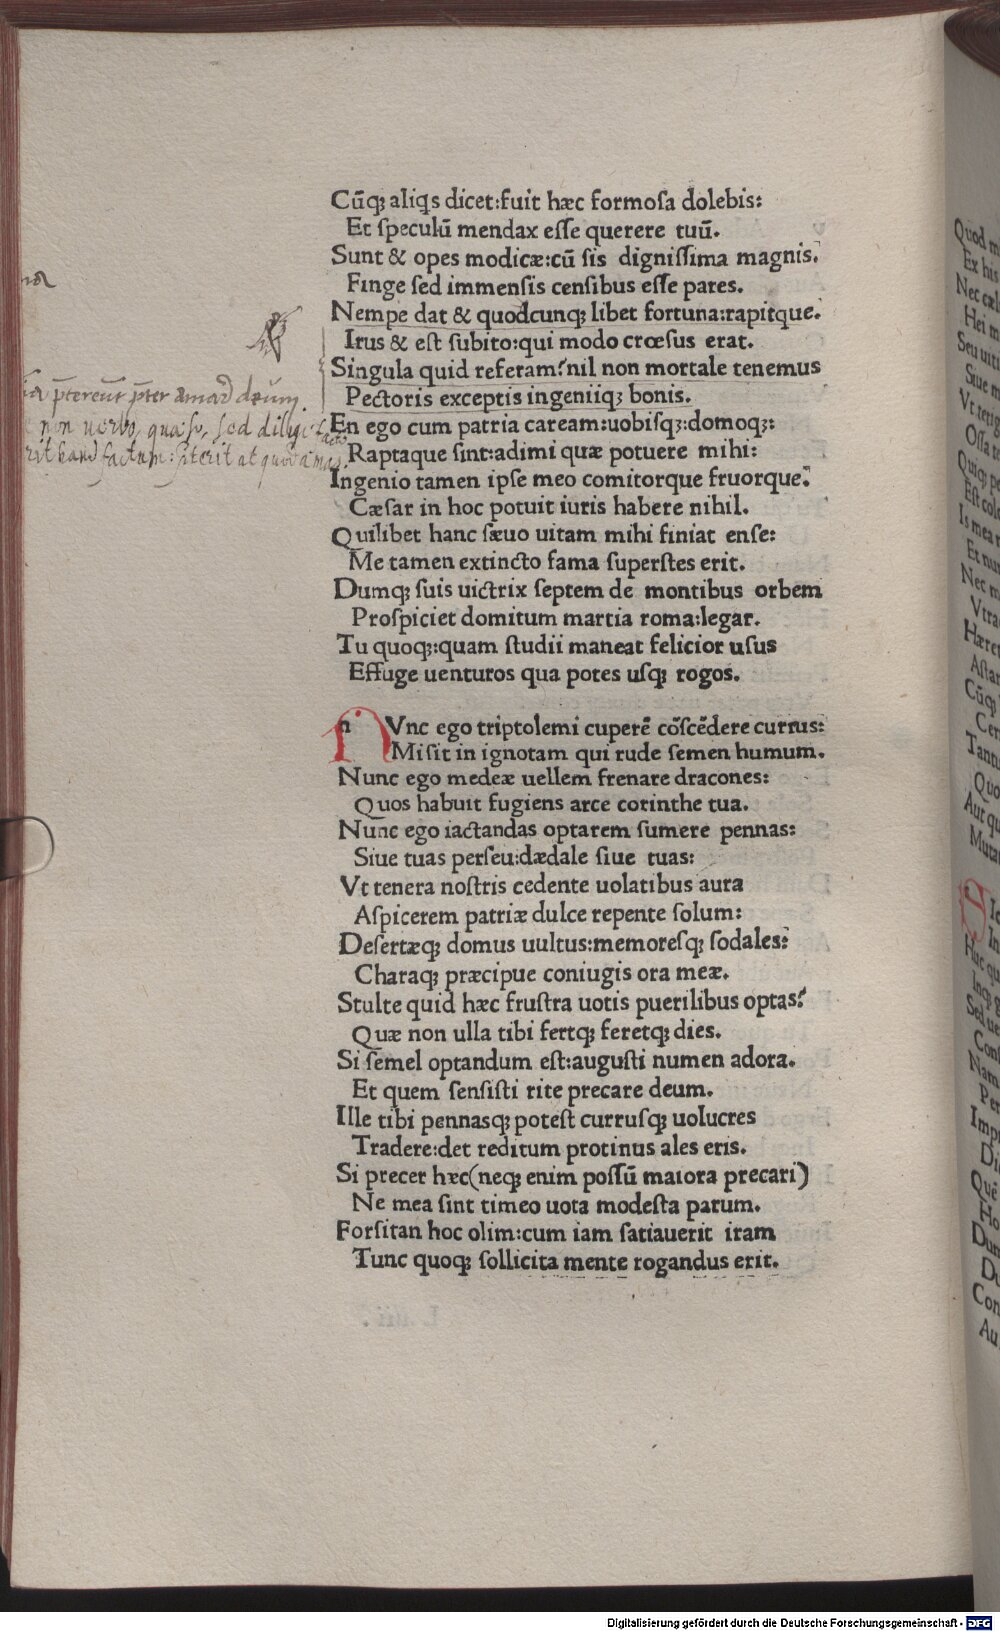 Cūq; aliq̄s dicet:fuit hæc formoſa dolebis:
Et ſpeculū mendax eſſe querere tuū.
Sunt & opes modicæ:cū ſis digniſſima magnis.
Finge ſed immenſis cenſibus eſſe pares.
Nempe dat & quodcunq; libet fortuna:rapitque.
Irus & eſt ſubito:qui modo crœſus erat.
Singula quid referam?nil non mortale tenemus
Pectoris exceptis ingeniiq; bonis.
En ego cum patria caream:uobiſq;:domoq;:
Raptaque ſint:adimi quæ potuere mihi:
Ingenio tamen ipſe meo comitorque fruorque:
Cæſar in hoc potuit iuris habere nihil.
Quilibet hanc ſæuo uitam mihi finiat enſe:
Me tamen extincto fama ſuperſtes erit.
Dumq; ſuis uictrix ſeptem de montibus orbem
Proſpiciet domitum martia roma:legar.
Tu quoq;:quam ſtudii maneat felicior uſus
Effuge uenturos qua potes uſq; rogos.
NVnc ego triptolemi cuperē cōſcēdere currus:
Miſit in ignotam qui rude ſemen humum.
Nunc ego medeæ uellem frenare dracones:
Quos habuit fugiens arce corinthe tua.
Nunc ego iactandas optarem ſumere pennas:
Siue tuas perſeu:dædale ſiue tuas:
Vt tenera noſtris cedente uolatibus aura
Aſpicerem patriæ dulce repente ſolum:
Deſertæq; domus uultus:memoreſq; ſodales:
Charaq; præcipue coniugis ora meæ.
Stulte quid hæc fruſtra uotis puerilibus optas?
Quæ non ulla tibi fertq; feretq; dies.
Si ſemel optandum eſt:auguſti numen adora.
Et quem ſenſiſti rite precare deum.
Ille tibi pennasq; poteſt curruſq; uolucres
Tradere:det reditum protinus ales eris.
Si precer hæc(neq; enim poſſū maiora precari)
Ne mea ſint timeo uota modeſta parum.
Forſitan hoc olim:cum iam ſatiauerit iram
Tunc quoq; ſollicita mente rogandus erit.
p̄tereūt p̄ter amad deum.
non uerbo, quæso, sed diligi
haud factum: p̄terit at quod
Digitalisierung gefördert durch die Deutsche Forschungsgemeinschaft - DFG